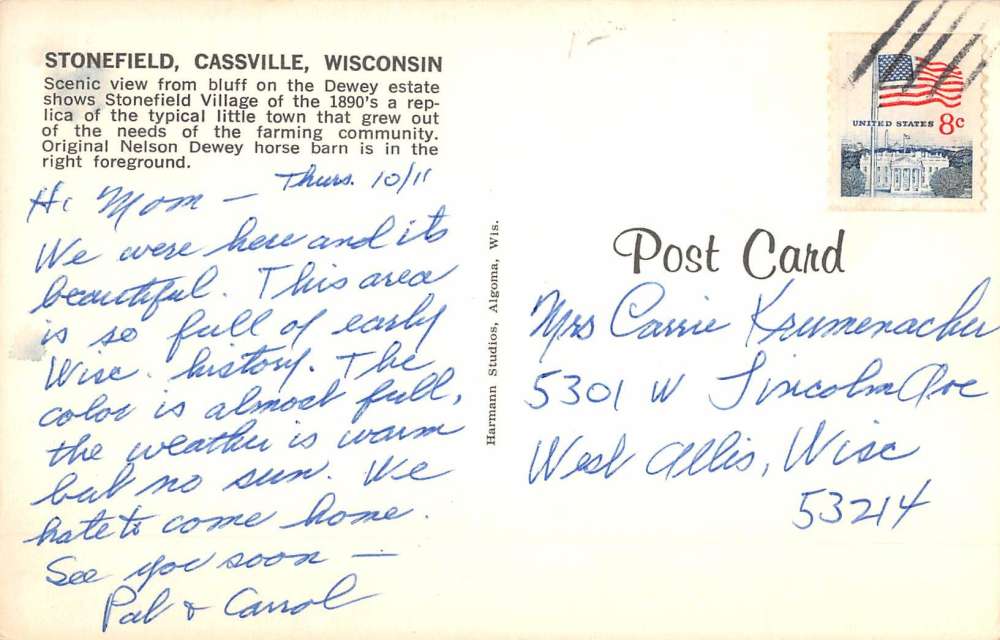 STONEFIELD, CASSVILLE, WISCONSIN
Scenic view from bluff on the Dewey estate
shows Stonefield Village of the 1890's a rep-
lica of the typical little town that grew out
of the needs of the farming community.
Original Nelson Dewey horse barn is in the
right foreground.
Thurs. 10/11
Hi Mom —
We were here and its
beautiful. This area
is so full of early
Wisc. history. The
color is almost full,
the weather is warm
but no sun. We
hate to come home.
See you soon —
Pat & Carrol
Harmann Studios, Algoma, Wis.
UNITED STATES 8c
Post Card
Mrs Carrie Krumenacher
5301 W Lincoln Ave
West Allis, Wisc
53214